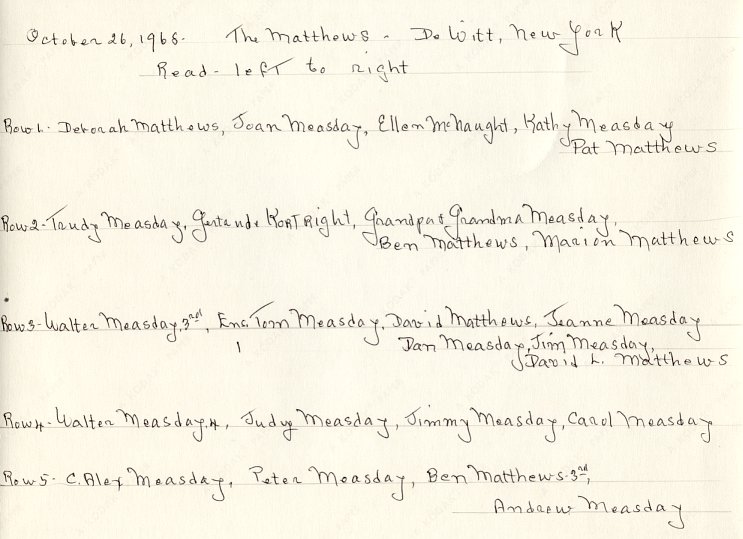 October 26, 1968. The Matthews - De Witt, New York
Read - left to right
Row 1 - Deborah Matthews, Joan Measday, Ellen McNaught, Kathy Measday
Pat Matthews
Row 2 - Trudy Measday, Gertrude Kortright, Grandpa & Grandma Measday,
Ben Matthews, Marion Matthews
Row 3 - Walter Measday, 3rd, Ens. Tom Measday, David Matthews, Jeanne Measday
Dan Measday, Jim Measday,
David L. Matthews
Row 4 - Walter Measday, 4, Judy Measday, Jimmy Measday, Carol Measday
Row 5 - C. Alex Measday, Peter Measday, Ben Matthews 3rd,
Andrew Measday